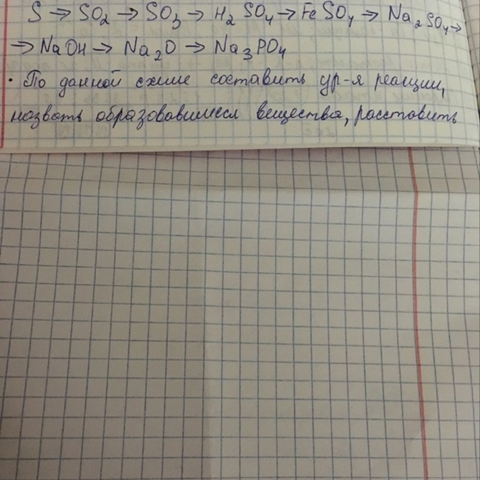 S → SO2 → SO3 → H2SO4 → FeSO4 → Na2SO4 →
→ NaOH → Na2O → Na3PO4
· По данной схеме составить ур-я реакции,
назвать образовавшиеся вещества, расставить